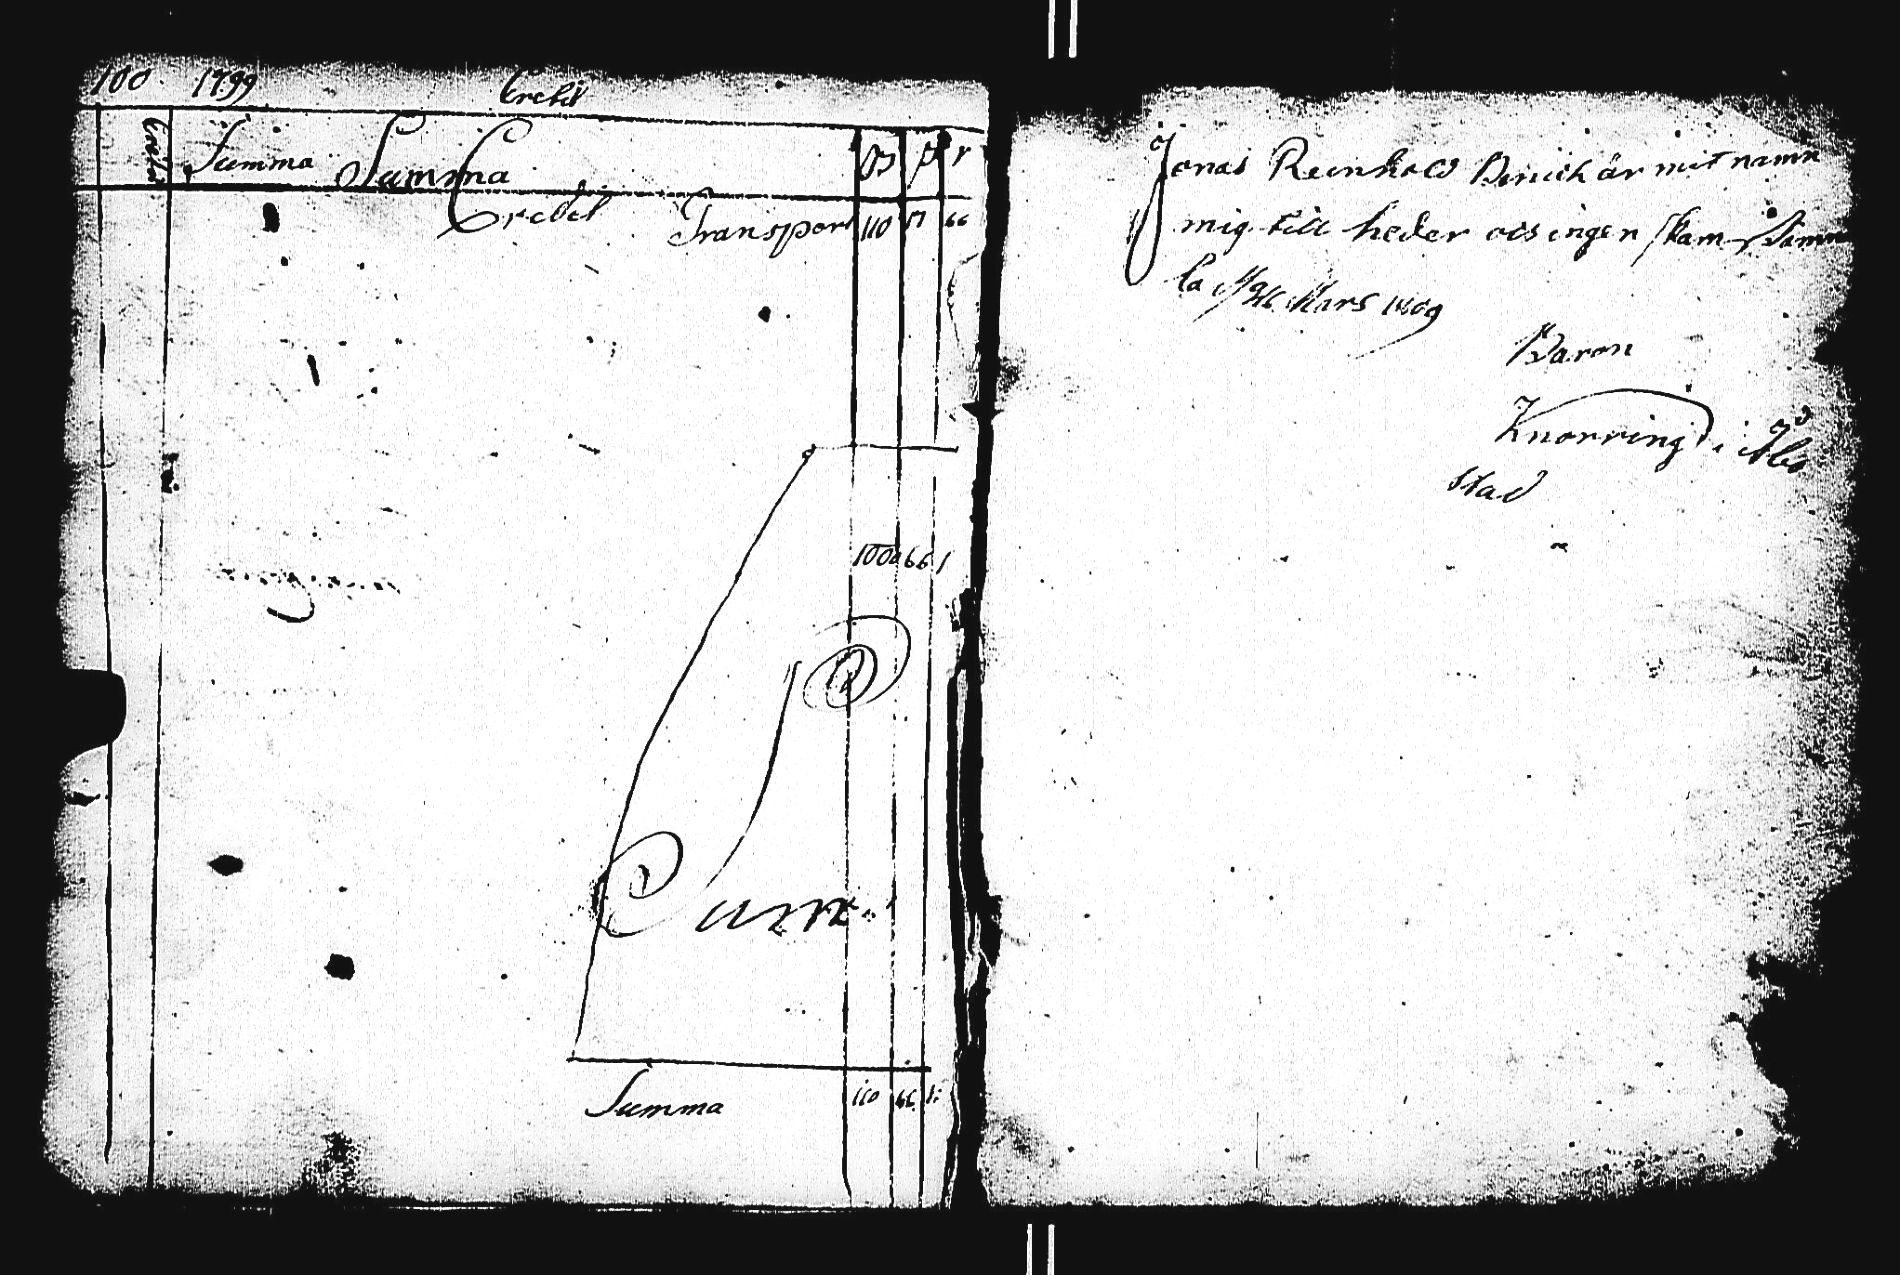 100 1799 Credit
Summa Summa
Credet Transport 110 17 66
1000 66 1
Sum
Summa 110 46
Jonas Reinhold är mit namn
mig till heder ingen skam
la Mars 1809
Baron
Knorring i Åbo
stad